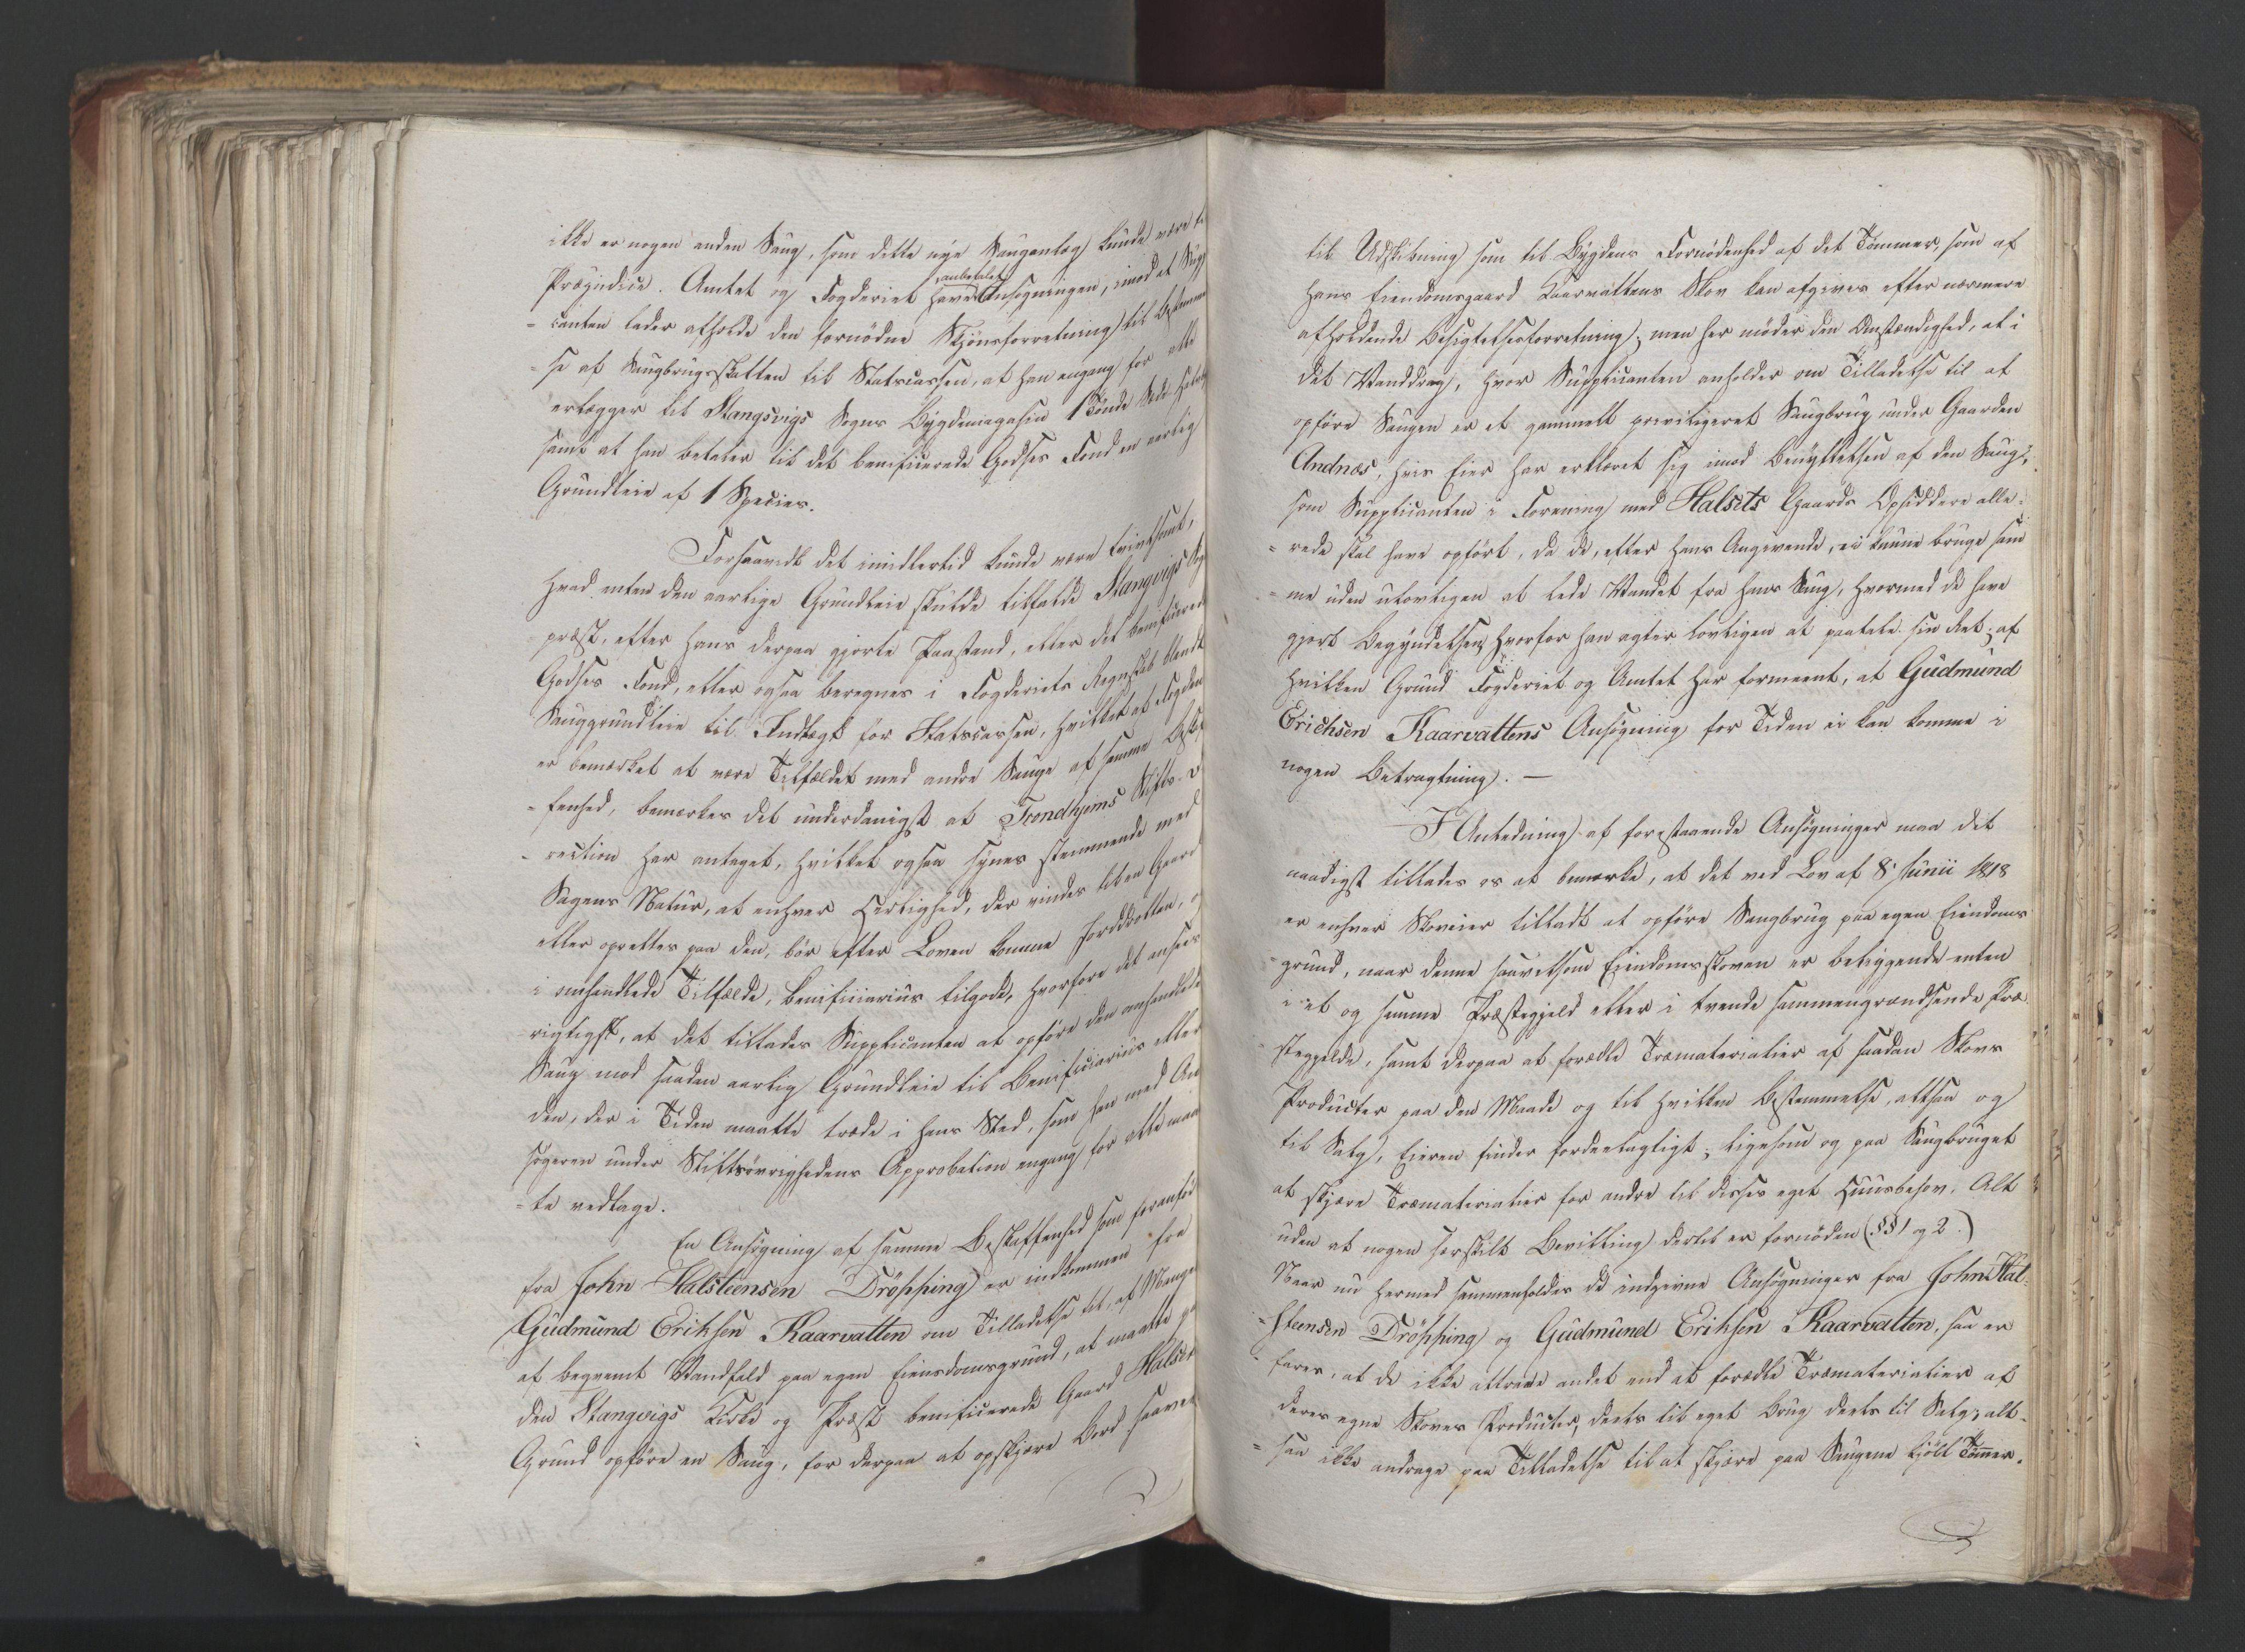 ikke er nogen anden Saug, som dette nye Sauganlæg kunde være til
Præjudice. Amtet og Fogderiet have anbefalet Ansøgningen, imod at Suppli
= canten lader afholde den fornödne Skjönsforretning til Bestemmel
= se af Saugbrugsskatten til Statscassen, at han engang for alle
erlægger til Stangsvigs Sogns Bygdemagasin 1 Tönde
samt at han betaler til det benificerede Godses Fond en aarlig
Grundleie af 1 Species.
Forsaavidt det imidlertid kunde være tvivlsomt,
hvad enten den aarlige Grundleie skulde tilfalde Stangvigs Sogne
præst, efter hans derpaa gjorte Paastand, eller det benificerede
Godses Fond, eller ogsaa beregnes i Fogderiets Regnskab blandt
Sauggrundleie til Indtægt for Statscassen, hvilket af Fogden
er bemærket at være Tilfældet med andre Sauge af samme Beskaf
= fenhed, bemærkes det underdanigst at Trondhjems Stifts-Di
= rection har antaget, hvilket ogsaa synes stemmende med
Sagens Natur, at enhver Herlighed, der vindes til en Gaard
eller oprettes paa den, bör efter Loven komme Jorddrotten, og
i omhandlede Tilfælde, Benificiarius tilgode, hvorfore det ansees
rigtigst, at det tillades Supplicanten at opföre den omhandlede
Saug mod saadan aarlig Grundleie til Benificiarius eller
den, der i Tiden maatte træde i hans Sted, som han med An
søgeren under Stiftsövrighedens Approbation engang for alle maat
= te vedtage.
En Ansögning af samme Beskaffenhed som foranför
fra John Halsteensen Dröpping er indkommen fra
Gudmund Eriksen Kaarvatten om Tilladelse til, af Mangel
af beqvemt Vandfald paa egen Eiendomsgrund, at maatte paa
den Stangvigs Kirke og Præst benificerede Gaard Halset
Grund opföre en Saug, for derpaa at opskjære Bord saavel
til Udskibning som til Bygdens Fornödenhed af det Tömmer, som af
hans Eiendomsgaard Kaarvattens Skov kan afgives efter nærmere
afholdende Besigtelsesforretning; men her möder den Omstændighed, at i
det Vanddrag, hvor Supplicanten anholder om Tilladelse til at
opföre Saugen er et gammelt priviligeret Saugbrug under Gaarden
Andnæs, hvis Eier har erklæret sig imod Benyttelsen af den Saug,
som Supplicanten i Forening med Halsets Gaards Opsiddere alle=
= rede skal have opfört, da de, efter hans Angivende, ei kunne bruge sam
= me uden ulovligen at lede Vandet fra hans Saug, hvormed de have
gjort Begyndelsen, hvorfor han agter lovligen at paatale sin Ret; af
hvilken Grund Fogderiet og Amtet har formeent, at Gudmund
Erichsen Kaarvattens Ansögning for Tiden ei kan komme i
nogen Betragtning. —
I Anledning af forestaaende Ansögninger maa det
naadigst tillades os at bemærke, at det ved Lov af 8. Junii 1818
er enhver Skoveier tilladt at opföre Saugbrug paa egen Eiendoms
grund, naar denne saavelsom Eiendomsskoven er beliggende enten
i et og samme Præstegjeld eller i tvende sammengrændsende Præ
stegjelde, samt derpaa at forædle Træmaterialier af saadan Skovs
Producter paa den Maade og til hvilken Bestemmelse, altsaa og
til Salg, Eieren finder fordeelagtigt; ligesom og paa Saugbruget
at skjære Træmaterialier for andre til disses eget Huusbehov. Alt
uden at nogen særskilt Bevilling dertil er fornöden (§§ 1 og 2.)
Naar nu hermed sammenholdes de indgivne Ansögninger fra John Hal=
= steensen Dröpping og Gudmund Eriksen Kaarvatten, saa er
fares, at de ikke attraae andet end at forædle Træmaterialier af
deres egne Skoves Producter, deels til eget Brug deels til Salg, alt=
= saa ikke andrage paa Tilladelse til at skjære paa Saugene kjöbt Tömmer.